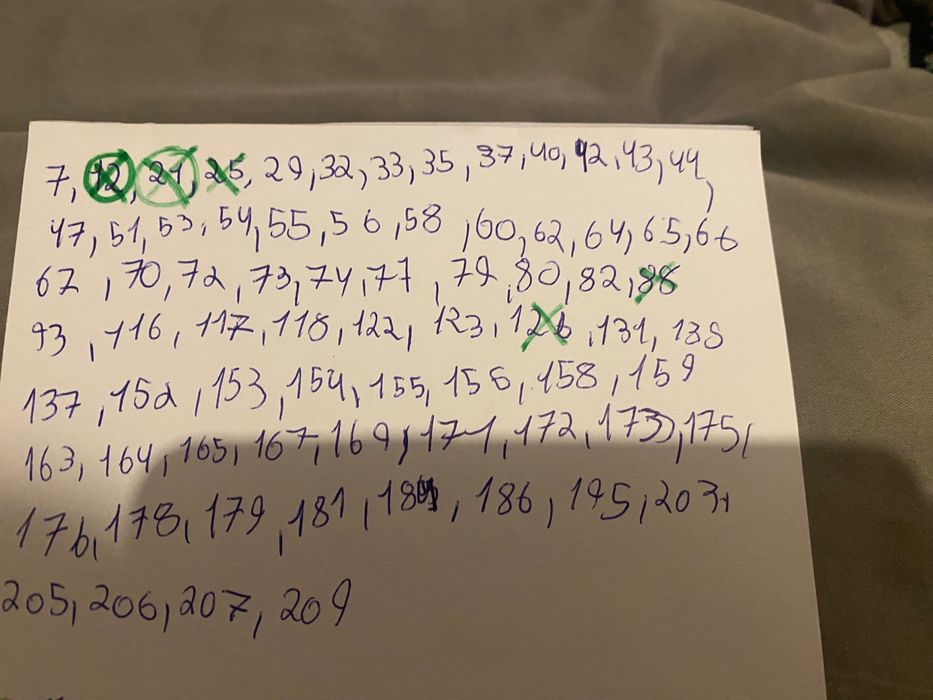 7, 12, 21, 25, 29, 32, 33, 35, 37, 40, 42, 43, 44,
47, 51, 53, 54, 55, 56, 58, 60, 62, 64, 65, 66
67, 70, 72, 73, 74, 77, 79, 80, 82, 88
93, 116, 117, 118, 122, 123, 126, 131, 138
137, 152, 153, 154, 155, 156, 158, 159
163, 164, 165, 167, 169, 171, 172, 173, 175,
176, 178, 179, 181, 184, 186, 195, 203,
205, 206, 207, 209